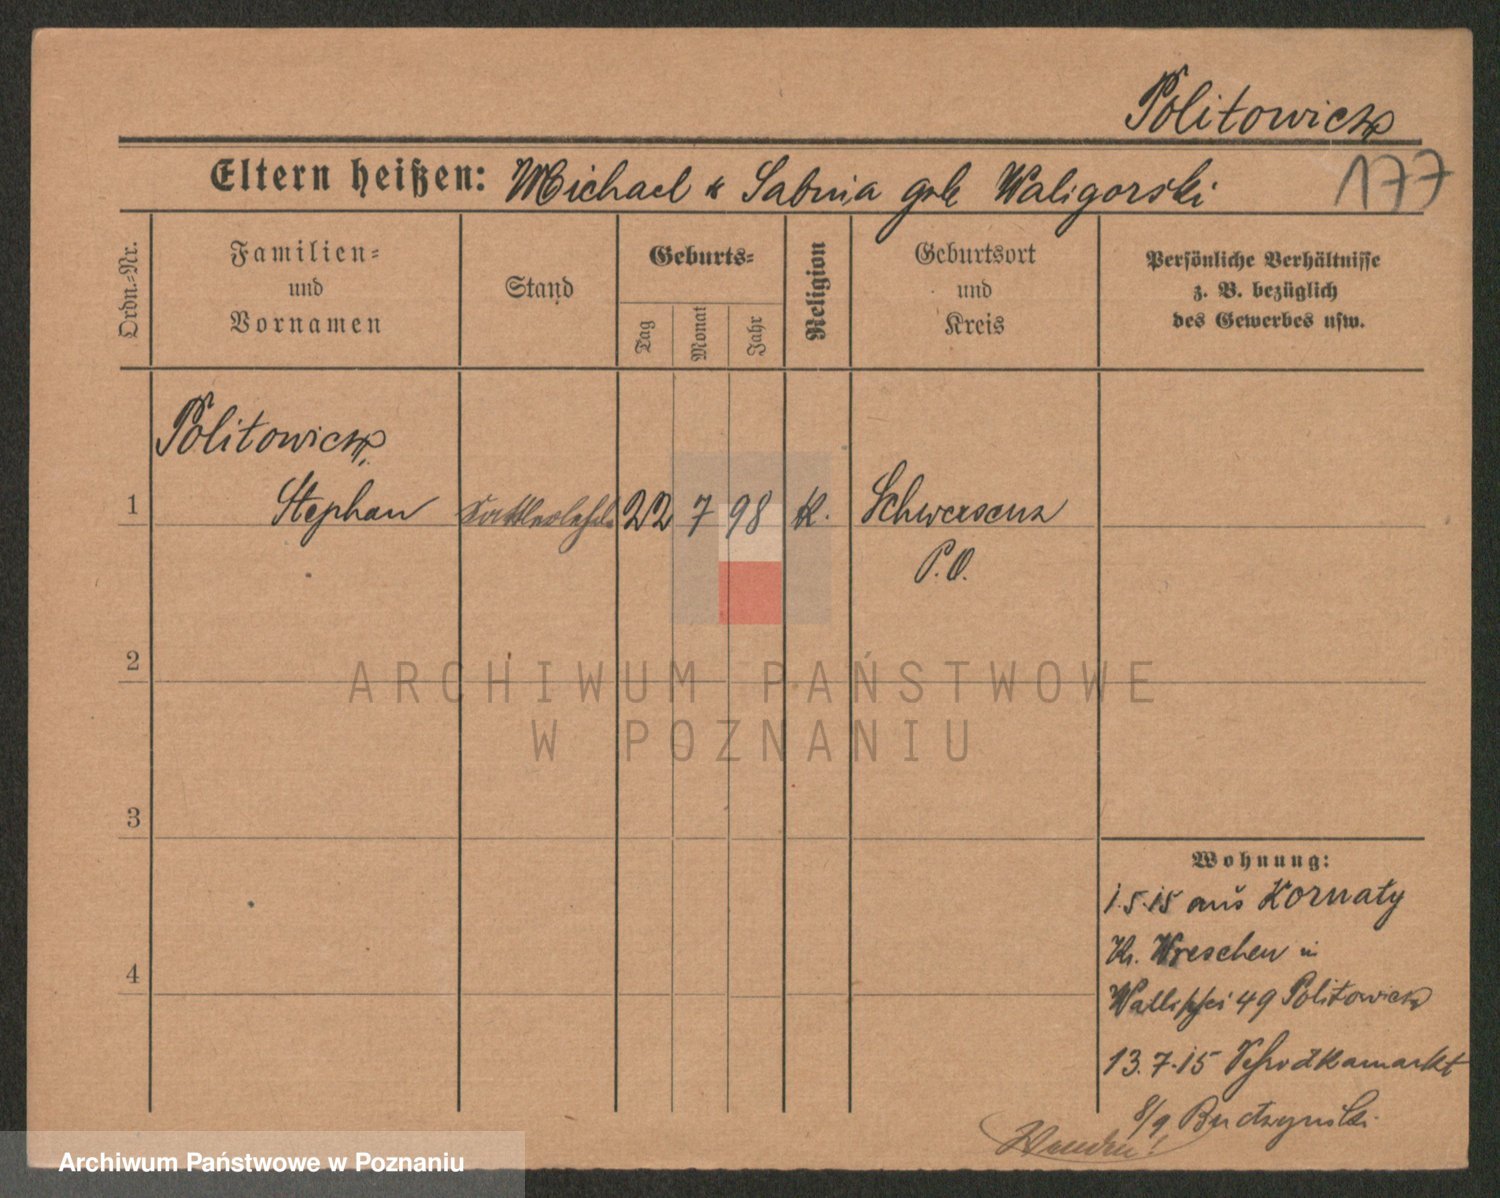 Politowicz
Eltern heißen: Michael & Sabina geb Waligorski
177
Ordn.-Nr.
Familien-
und
Vornamen
Stand
Geburts-
Tag
Monat
Jahr
Religion
Geburtsort
und
Kreis
Persönliche Verhältnisse
z. B. bezüglich
des Gewerbes usw.
Politowicz,
1 Stephan Sattlerlehrl. 22 7 98 K. Schwersenz
P. O.
2
3
4
Wohnung:
1.5.15 aus Kornaty
Kr. Wreschen in
49 Politowicz
13.7.15 Schrodkamarkt
8/9 Budzynski
ARCHIWUM PAŃSTWOWE
W POZNANIU
Archiwum Państwowe w Poznaniu